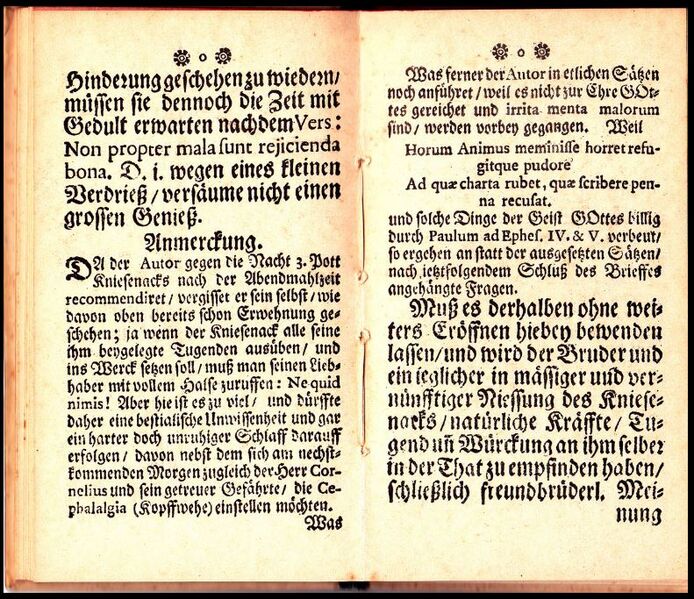 o
Hinderung geschehen zu wiedern/
müssen sie dennoch die Zeit mit
Gedult erwarten nach dem Vers:
Non propter mala sunt rejicienda
bona. D. i. wegen eines kleinen
Verdrieß/ versäume nicht einen
grossen Genieß.
Anmerckung.
DA der Autor gegen die Nacht 3. Pott
Kniesenacks nach der Abendmahlzeit
recommendiret/ vergisset er sein selbst/ wie
davon oben bereits schon Erwehnung ge-
schehen; ja wenn der Kniesenack alle seine
ihm beygelegte Tugenden ausüben/ und
ins Werck setzen soll/ muß man seinen Lieb-
haber mit vollem Halse zuruffen: Ne quid
nimis! Aber hie ist es zu viel/ und dürffte
daher eine bestialische Unwissenheit und gar
ein harter doch unruhiger Schlaff darauff
erfolgen/ davon nebst dem sich am nechst-
kommenden Morgen zugleich der Herr Cor-
nelius und sein getreuer Gefährte/ die Ce-
phalalgia (Kopffwehe) einstellen möchten.
Was
o
Was ferner der Autor in etlichen Sätzen
noch anführet/ weil es nicht zur Ehre GOt-
tes gereichet und irrita menta malorum
sind/ werden vorbey gegangen. Weil
Horum Animus meminisse horret refu-
gitque pudore
Ad quæ charta rubet, quæ scribere pen-
na recusat.
und solche Dinge der Geist GOttes billig
durch Paulum ad Ephes. IV. & V. verbeut/
so ergehen an statt der ausgesetzten Sätzen/
nach jetztfolgendem Schluß des Brieffes
angehängte Fragen.
Muß es derhalben ohne wei-
ters Eröffnen hiebey bewenden
lassen/ und wird der Bruder und
ein jeglicher in mässiger und ver-
nünfftiger Niessung des Kniese-
nacks/ natürliche Kräffte/ Tu-
gend uñ Würckung an ihm selber
in der That zu empfinden haben/
schließlich freundbrüderl. Mei-
nung